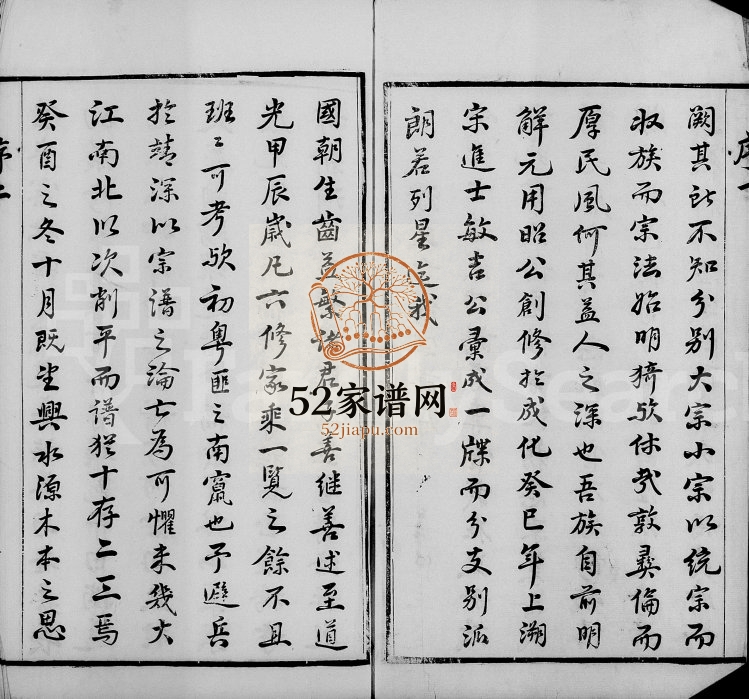 闕其所不知分别大宗小宗以統宗而
收族而宗法始明猗歟休哉敦彝倫而
厚民風何其益人之深也吾族自前明
解元用昭公創修於成化癸巳年上溯
宗進士敏吉公彙成一牒而分支别派
朗若列星迄我
國朝生齒益繁諸君子善继善述至道
光甲辰歲凡六修家乘一覽之餘不且
班〻可考歟初粤匪之南竄也予避兵
於靖深以宗譜之淪亡為可懼未幾大
江南北以次削平而譜猶十存二三焉
癸酉之冬十月既望興水源木本之思
序一
序二
52家谱网
52jiapu.com